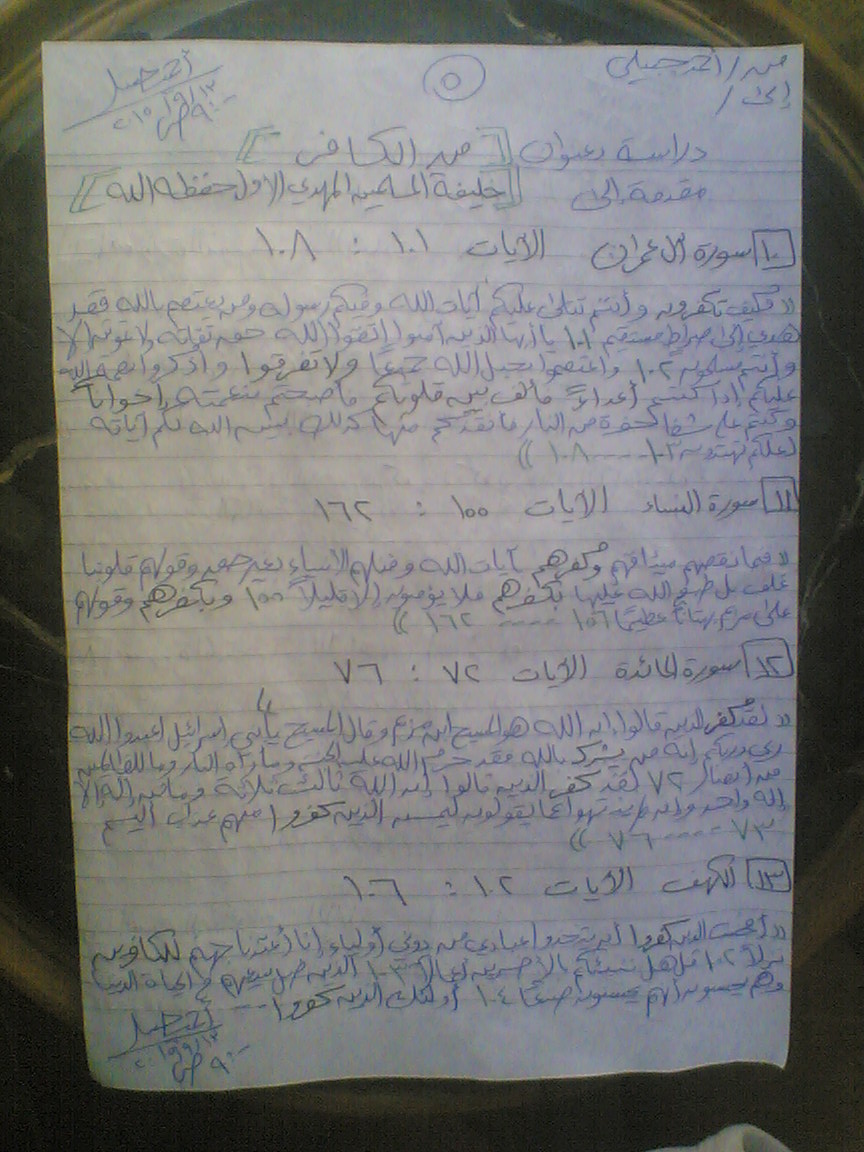 من / أحمد جميلي
إلى /
٥
دراسة بعنوان [[ من الكافر ]]
مقدمة إلى [[ خليفة المسلمين المهدي الأول حفظه الله ]]
١٠ سورة آل عمران الآيات ١٠١ : ١٠٨
(( وكيف تكفرون وأنتم تتلى عليكم آيات الله وفيكم رسوله ومن يعتصم بالله فقد
هدي إلى صراط مستقيم ١٠١ يا أيها الذين آمنوا اتقوا الله حق تقاته ولا تموتن إلا
وأنتم مسلمون ١٠٢ واعتصموا بحبل الله جميعًا ولا تفرقوا واذكروا نعمة الله
عليكم إذا كنتم أعداءً فألف بين قلوبكم فأصبحتم بنعمته إخوانًا
وكنتم على شفا حفرة من النار فأنقذكم منها كذلك يبين الله لكم آياته
لعلكم تهتدون ١٠٣ ---- ١٠٨ ))
١١ سورة النساء الآيات ١٥٥ : ١٦٢
(( فبما نقضهم ميثاقهم وكفرهم بآيات الله وقتلهم الأنبياء بغير حق وقولهم قلوبنا
غلف بل طبع الله عليها بكفرهم فلا يؤمنون إلا قليلاً ١٥٥ وبكفرهم وقولهم
على مريم بهتانًا عظيمًا ١٥٦ ---- ١٦٢ ))
١٢ سورة المائدة الآيات ٧٢ : ٧٦
(( لقد كفر الذين قالوا إن الله هو المسيح ابن مريم وقال المسيح يا بني اسرائيل اعبدوا الله
ربي وربكم إنه من يشرك بالله فقد حرم الله عليه الجنة ومأواه النار وما للظالمين
من أنصار ٧٢ لقد كفر الذين قالوا إن الله ثالث ثلاثة وما من إله إلا
إله واحد وإن لم ينتهوا عما يقولون ليمسن الذين كفروا منهم عذاب أليم
٧٣ ---- ٧٦ ))
١٣ الكهف الآيات ١٠٢ : ١٠٦
(( أفحسب الذين كفروا أن يتخذوا عبادي من دوني أولياء إنا أعتدنا جهنم للكافرين
نزلاً ١٠٢ قل هل ننبئكم بالأخسرين أعمالاً ١٠٣ الذين ضل سعيهم في الحياة الدنيا
وهم يحسبون أنهم يحسنون صنعًا ١٠٤ أولئك الذين كفروا ----